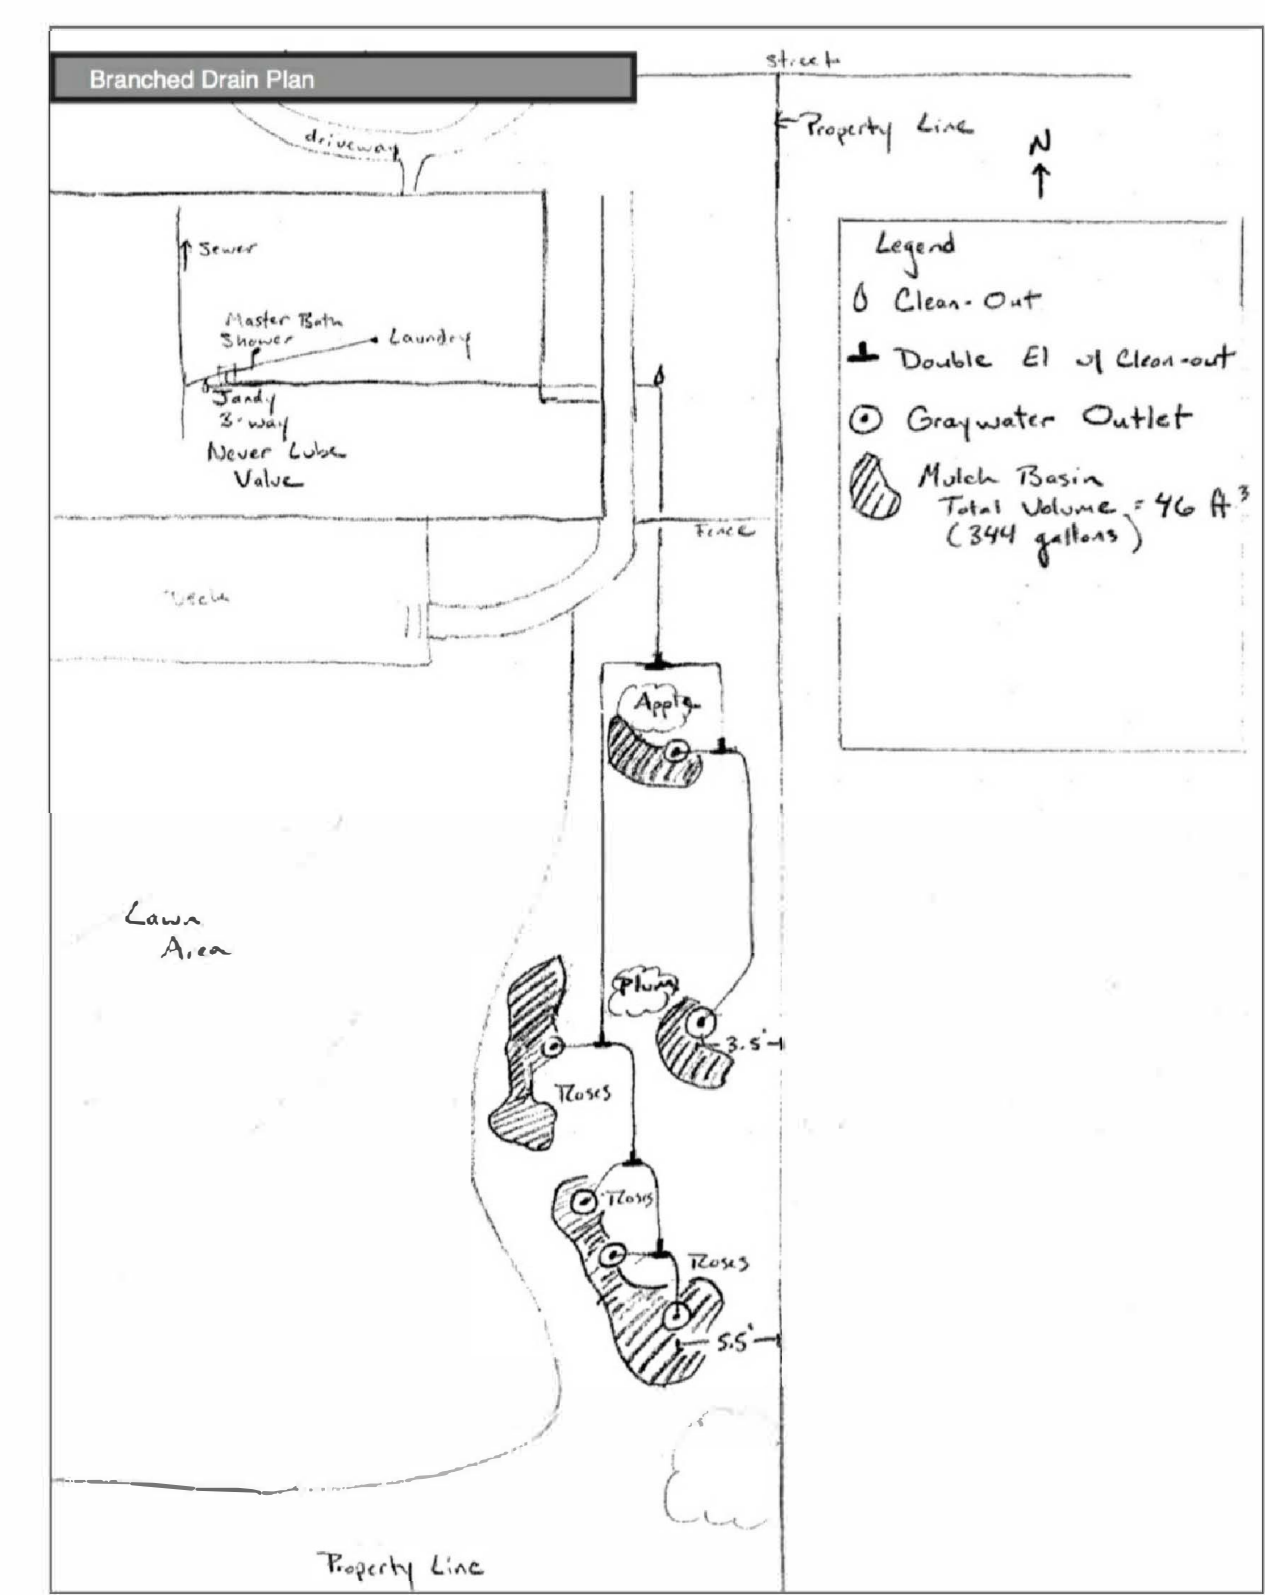 Branched Drain Plan
street
driveway
Property Line
N
Sewer
Master Bath
Shower
Laundry
Jandy
3-way
Never Lube
Value
Legend
Clean-Out
Double El w/ Clean-out
Graywater Outlet
Mulch Basin
Total Volume = 46 ft³
(344 gallons)
Fence
Deck
Apple
Lawn
Area
Plum
3.5'
Roses
Roses
Roses
5.5'
Property Line